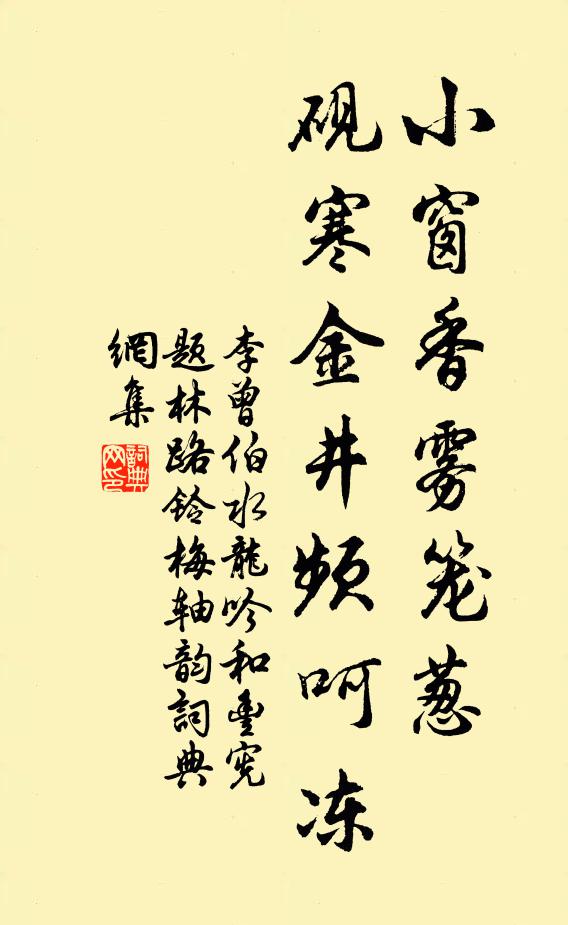 小窗香雾笼葱
砚寒金井频呵冻
李曾伯水龍吟和丰宪
题林路铃梅轴韵詞典
網集
詞典网印